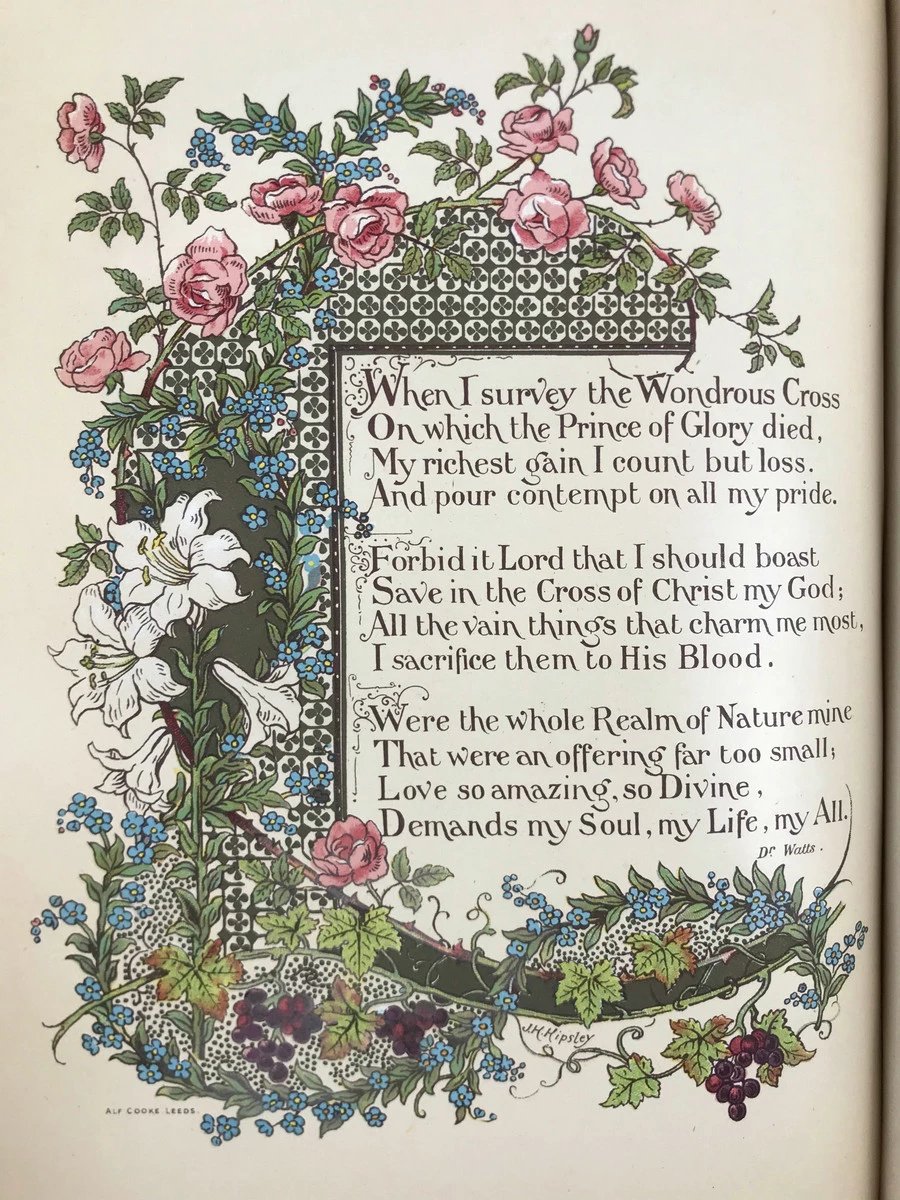 When I survey the Wondrous Cross
On which the Prince of Glory died,
My richest gain I count but loss.
And pour contempt on all my pride.
Forbid it Lord that I should boast
Save in the Cross of Christ my God;
All the vain things that charm me most,
I sacrifice them to His Blood.
Were the whole Realm of Nature mine
That were an offering far too small;
Love so amazing, so Divine,
Demands my Soul, my Life, my All.
Dr Watts.
J.H. Hipsley
ALF COOKE LEEDS.